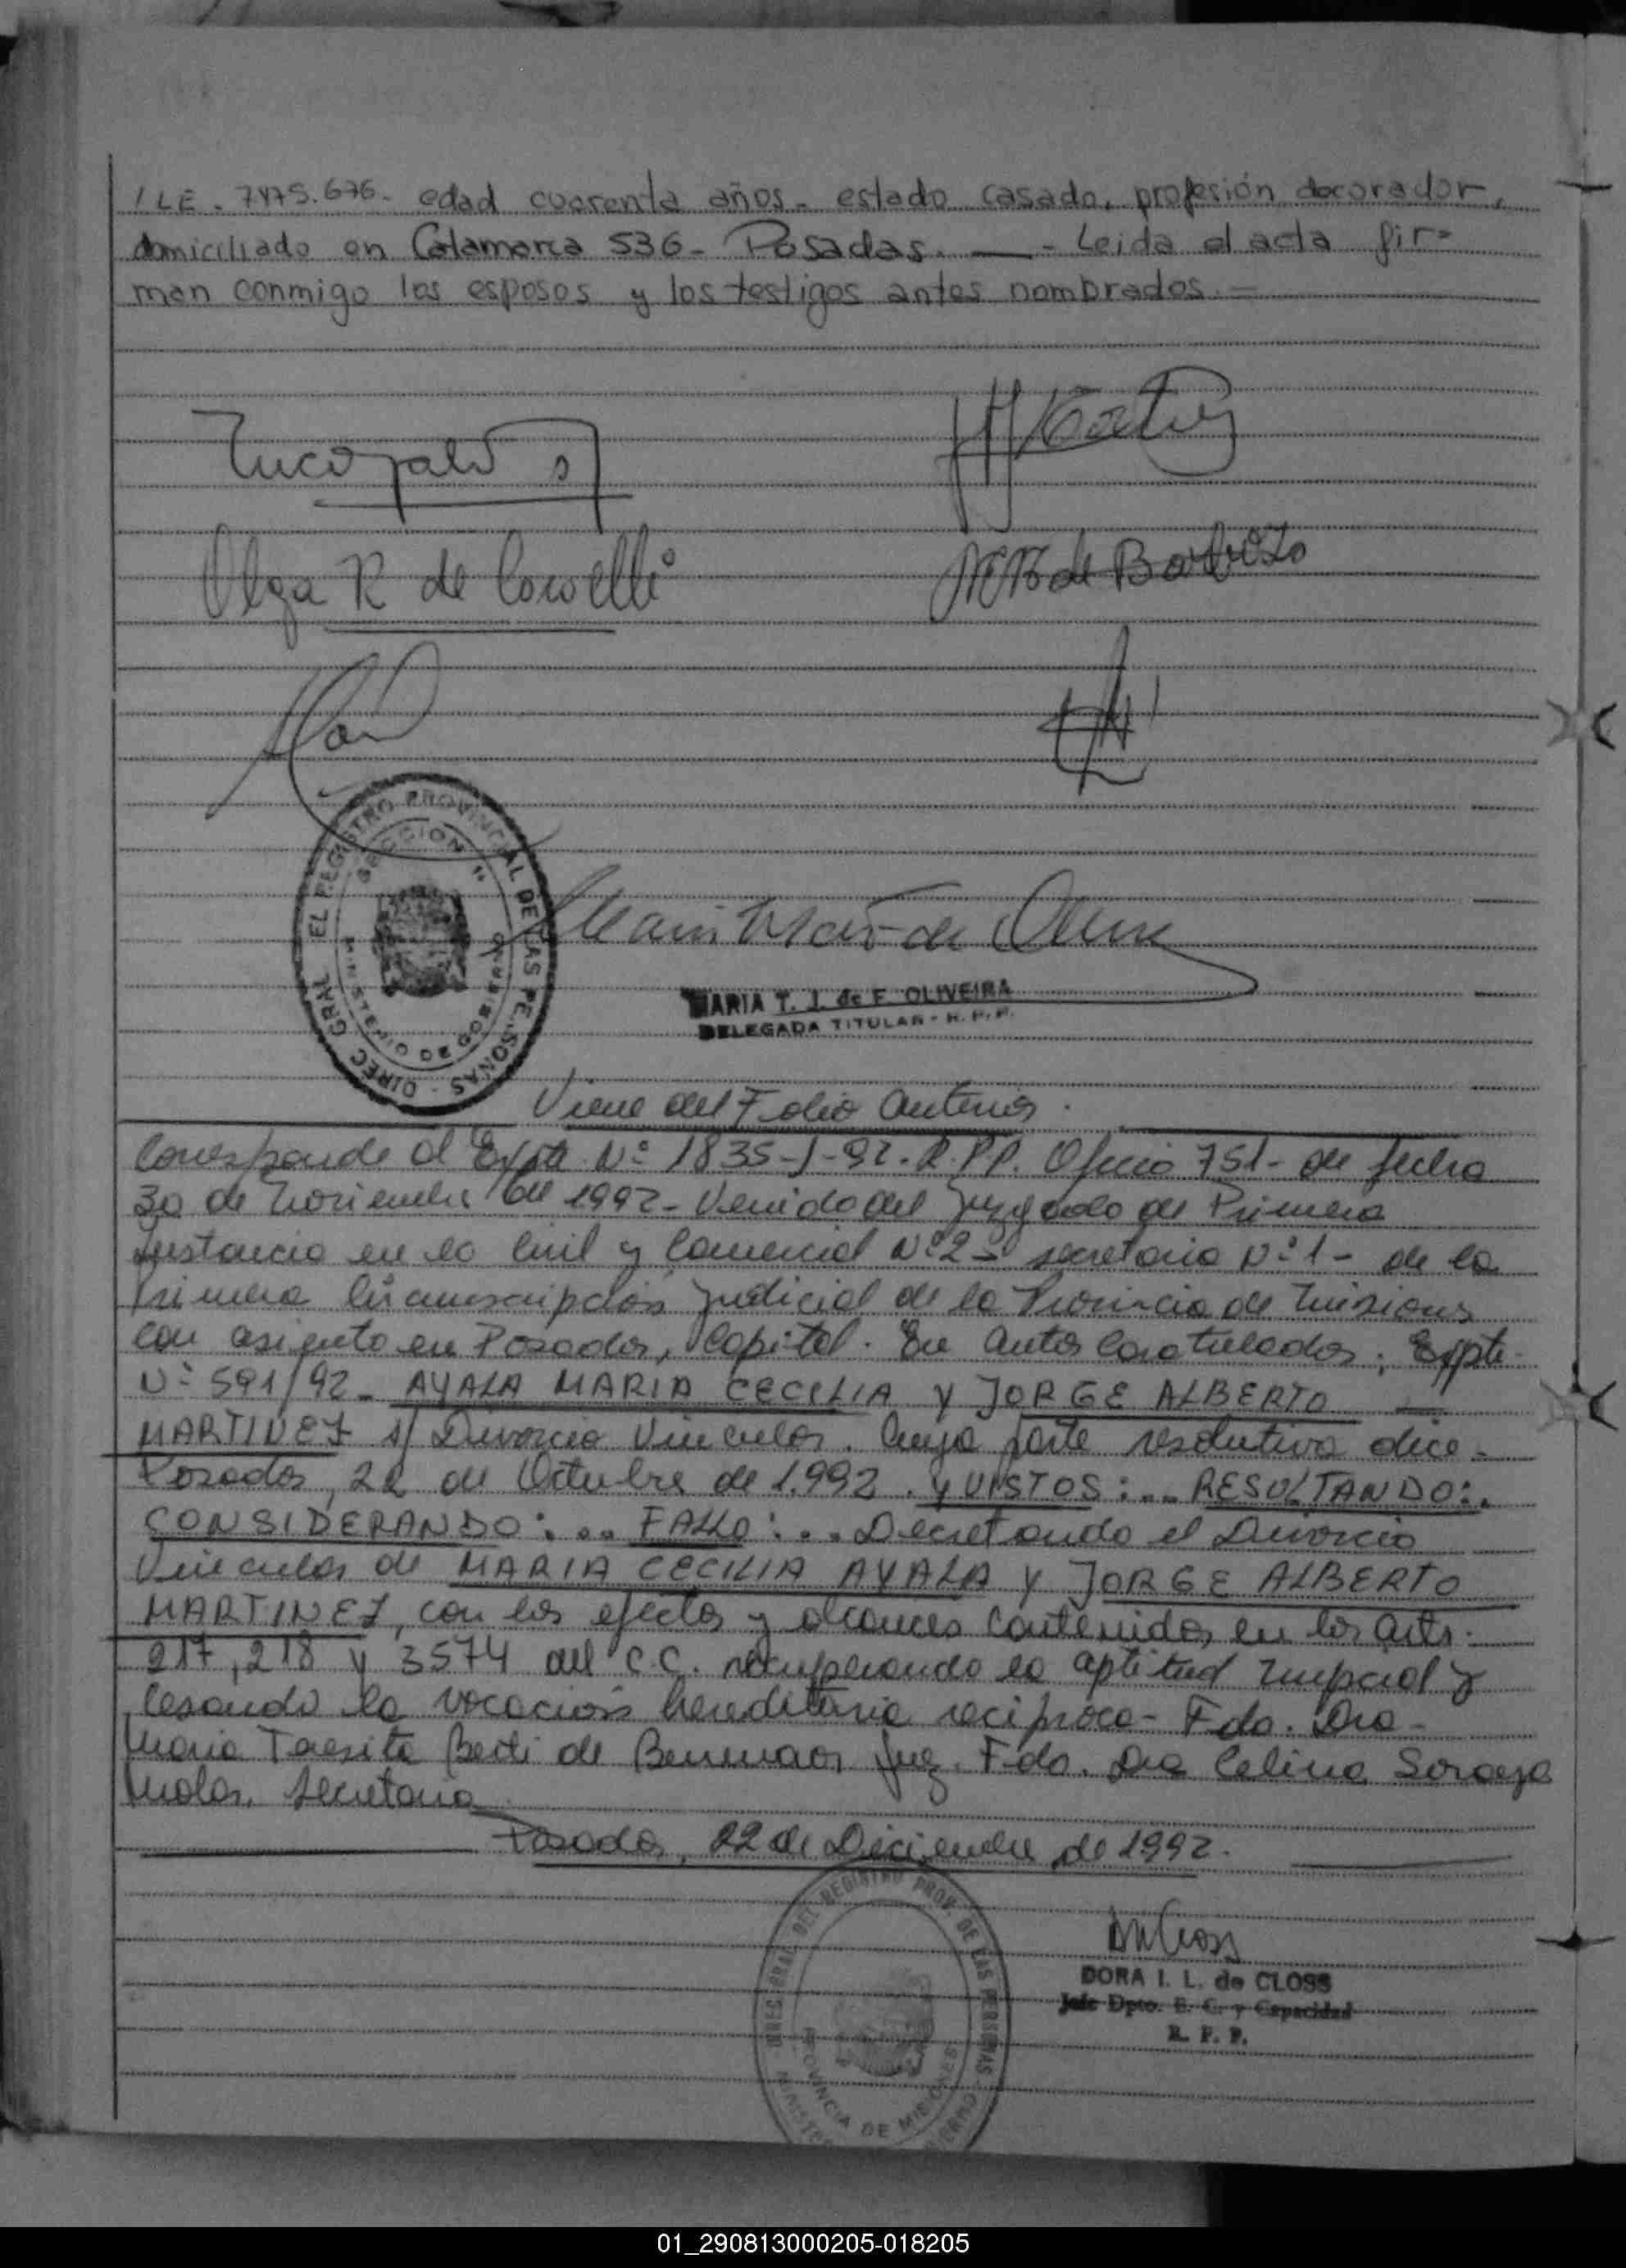 LE. 7.475.676. edad cuarenta años. estado casado, profesión decorador,
domiciliado en Catamarca 536 - Posadas. — - Leida el acta fir=
man conmigo los esposos y los testigos antes nombrados. —
Olga R de
de Barboza
DIREC GRAL EL REGISTRO PROVINCIAL DE LAS PERSONAS
SECCION 1ª
MINISTERIO DE GOBIERNO
MARIA T. J. de F. OLIVEIRA
DELEGADA TITULAR - R. P. P.
Viene del Folio Anterior.
Corresponde al Expte. Nº 1835-J-92. R.P.P. Oficio 751- de fecha
30 de Noviembre de 1992 - Venido del Juzgado de Primera
Instancia en lo Civil y Comercial Nº 2 - secretaria Nº 1 - de la
Primera Circunscripción Judicial de la Provincia de Misiones
con asiento en Posadas, Capital. En autos Caratulados; Expte.
Nº 591/92 - AYALA MARIA CECILIA Y JORGE ALBERTO —
MARTINEZ s/ Divorcio Vincular. Cuya parte resolutiva dice -
Posadas, 22 de Octubre de 1.992. Y VISTOS: ... RESULTANDO:.
CONSIDERANDO: ... FALLO: ... Decretando el Divorcio
Vincular de MARIA CECILIA AYALA Y JORGE ALBERTO
MARTINEZ, con los efectos y alcances contenidos en los arts.
217, 218 y 3574 del C.C. recuperando la aptitud nupcial y
cesando la vocación hereditaria reciproca - Fdo. Dra -
Maria Teresita de Juez. Fdo. Dra Celina Soraya
Secretaria
Posadas, 22 de Diciembre de 1992.
DIREC. GRAL. DEL REGISTRO PROV. DE LAS PERSONAS
PROVINCIA DE MISIONES
DORA I. L. de CLOSS
Jefe Dpto. E. C. y Capacidad
R. P. P.
01_290813000205-018205